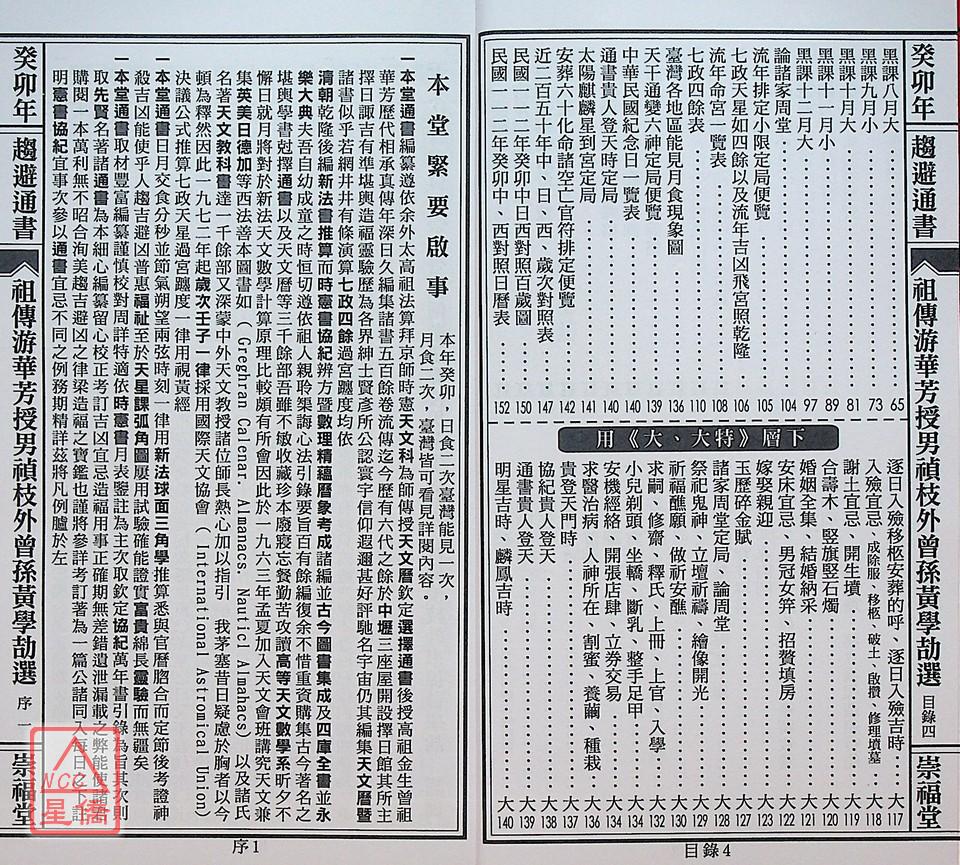 癸卯年
趨避通書
祖傳游華芳授男禎枝外曾孫黃學劼選
目錄四
崇福堂
黑課八月大 65
黑課九月小 73
黑課十月大 81
黑課十一月小 89
黑課十二月大 97
論諸家周堂 104
流年排定小限定局便覽 105
七政天星如四餘以及流年吉凶飛宮照乾隆 106
流年命宮一覽表 108
七政四餘表 110
臺灣各地區能見月食現象圖 136
天干通變六神定局便覽 139
中華民國紀念日一覽表 140
通書貴人登天時定局 140
太陽麒麟星到宮定局 141
安葬六十化命諸空亡官符排定便覽 142
近二百五十年中、日、西、歲次對照表 147
民國一一二年癸卯中日西對照百歲圖 150
民國一一二年癸卯中、西對照日曆表 152
下層《特大、大》用
逐日入殮移柩安葬的呼、逐日入殮吉時 大117
入殮宜忌、成除服、移柩、破土、啟攢、修理墳墓 大118
謝土宜忌、開生墳 大119
合壽木、竪旗竪石燭 大120
婚姻全集、結婚納采 大121
安床宜忌、男冠女笄、招贅填房 大122
嫁娶親迎 大123
玉歷碎金賦 大127
諸家周堂定局、論周堂 大128
祭祀鬼神、立壇祈禱、繪像開光 大129
祈福醮願、做祈安醮 大130
求嗣、修齋、釋氏、上冊、上官、入學 大131
小兒剃頭、坐轎、斷乳、整手足甲 大132
安機經絡、開張店肆、立券交易 大134
求醫治病、人神所在、割蜜、養繭、種栽 大136
貴登天門時 大137
協紀貴人登天 大138
通書貴人登天 大139
明星吉時、麟鳳吉時 大140
目錄4
本堂緊要啟事
本年癸卯，日食二次臺灣能見一次，
月食二次，臺灣皆可看見詳閱內容。
一本堂通書編纂遵依余外太高祖法算拜京師時憲天文科為師傳授天文曆欽定選擇通書後授高祖金生曾祖
華芳歷代相承真傳年深日久編集諸書五百餘卷流傳迄今歷有六代之餘於中壢三座屋開設擇日館其所主
擇日諏吉有準堪輿造福靈驗歷為各界紳士賢彥所公認寰宇信仰遐邇甚好評馳名宇宙仍其編集天文曆暨
諸書似乎若網井井有條演算七政四餘過宮躔度均依
清朝乾隆後編新法書推算而時憲書協紀辨方暨數理精蘊曆象考成諸編並古今圖書集成及四庫全書並永
樂大典夫吾自幼成童之時恒切遵依祖人親聆槃誨心法引錄要旨百有餘編復余不惜重資購集古今著名之
堪輿學書尅擇通書以及天文曆等三千餘部吾雖不敏收藏珍本廢寢忘餐勤苦攻讀高等天文數學系昕夕不
懈日就月將對於新法天文數學計算原理比較頗有所會因此於一九六三年孟夏加入天文會班講究天文兼
集英美日德加等西法善本圖書如（Greghran Calenar. Almanacs. Nauticl Almahacs）以及諸氏
名著天文教科書達一千餘部又深蒙中外天文教授諸位師長熱心加以指引　我茅塞昔日疑慮於胸者以今
頓為釋然因此一九七二年起歲次壬子一律採用國際天文協會（International Astromical Union）
決議公式推算七政天星過宮躔度一律用視黃經
一本堂通書日月交食分秒並節氣朔望兩弦時刻一律用新法球面三角學推算悉與官曆脗合而定節後考證神
殺吉凶能使乎人趨吉避凶普惠福祉至於天星課弧角圖屢用試驗確能證實富貴綿長靈驗而無疆矣
一本堂通書取材豐富編纂謹慎校對周詳特適依時憲書月表鑒註為主次取欽定協紀萬年書引錄為旨其次則
取先賢名著諸通書為本細心編纂留心校正考訂吉凶宜忌造福用事正確期無差錯遺泄漏載之弊能使諸君
購閱一本萬利無不昭合洵美趨吉避凶之律梁造福之寶鑑也謹將參詳考訂著為一篇公諸同入每日之下註
明憲書協紀宜事次參以通書宜忌不同之例務期精詳茲將凡例臚於左
癸卯年
趨避通書
祖傳游華芳授男禎枝外曾孫黃學劼選
序一
崇福堂
序1
NCC
星僑